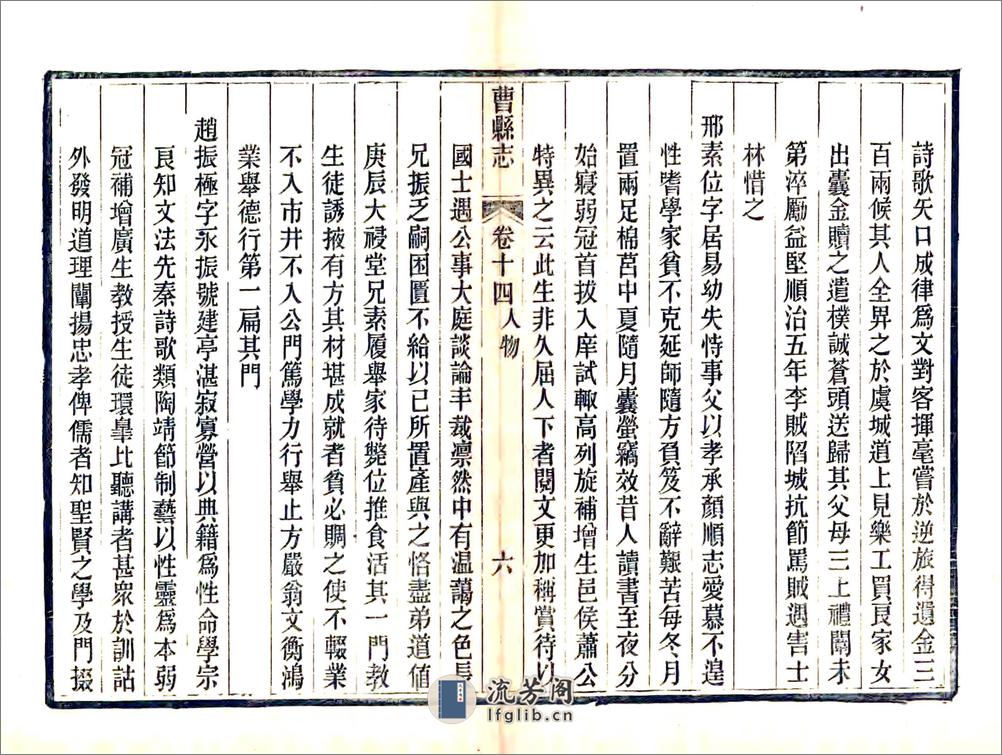 詩歌矢口成律爲文對客揮毫嘗於逆旅得遺金三
百兩候其人全畀之於虞城道上見樂工買良家女
出囊金贖之遣樸誠蒼頭送歸其父母三上禮闈未
第淬勵益堅順治五年李賊陷城抗節罵賊遇害士
林惜之
邢素位字居易幼失恃事父以孝承顏順志愛慕不遑
性嗜學家貧不克延師隨方負笈不辭艱苦每冬月
置兩足棉莒中夏隨月囊螢竊效昔人讀書至夜分
始寢弱冠首拔入庠試輙高列旋補增生邑侯蕭公
特異之云此生非久屈人下者閱文更加稱賞待以
曹縣志
卷十四 人物
六
國士遇公事大庭談論丰裁凛然中有温藹之色長
兄振乏嗣困匱不給以己所置產與之恪盡弟道値
庚辰大祲堂兄素履舉家待斃位推食活其一門教
生徒誘掖有方其材堪成就者貧必賙之使不輟業
不入市井不入公門篤學力行舉止方嚴翁文衡鴻
業舉德行第一扁其門
趙振極字永振號建亭湛寂寡營以典籍爲性命學宗
良知文法先秦詩歌類陶靖節制藝以性靈爲本弱
冠補增廣生教授生徒環臯比聽講者甚衆於訓詁
外發明道理闡揚忠孝俾儒者知聖賢之學及門掇
流芳阁
lfglib.cn